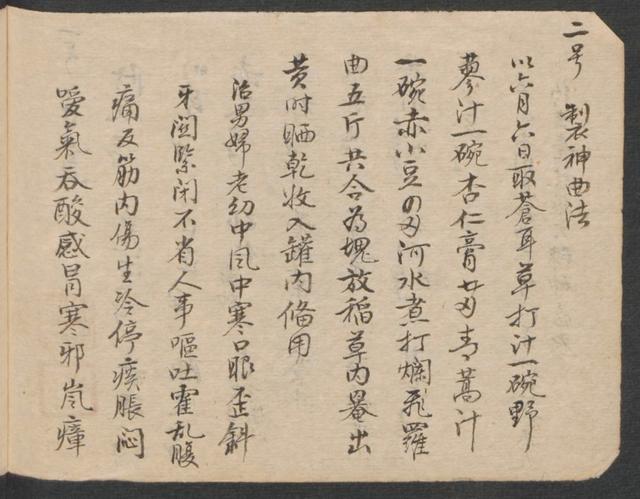 二号　製神曲法
以六月六日取蒼耳草打汁一碗野
蓼汁一碗杏仁膏廿匁青蒿汁
一碗赤小豆四匁河水煮打爛飛羅
曲五斤共合為塊放稻草內罨出
黄时晒乾收入罐内俻用
治男婦老幼中風中寒口眼歪斜
牙関緊閉不省人事嘔吐霍乱腹
痛反筋内傷生冷停痰脹悶
噯氣吞酸感冒寒邪嵐瘴